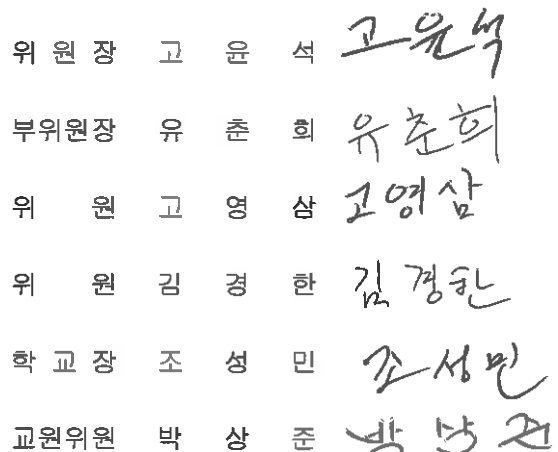 위 원 장 고 윤 석 고윤석
부위원장 유 춘 희 유춘희
위 원 고 영 삼 고영삼
위 원 김 경 한 김경한
학 교 장 조 성 민 조성민
교원위원 박 상 준 박상준